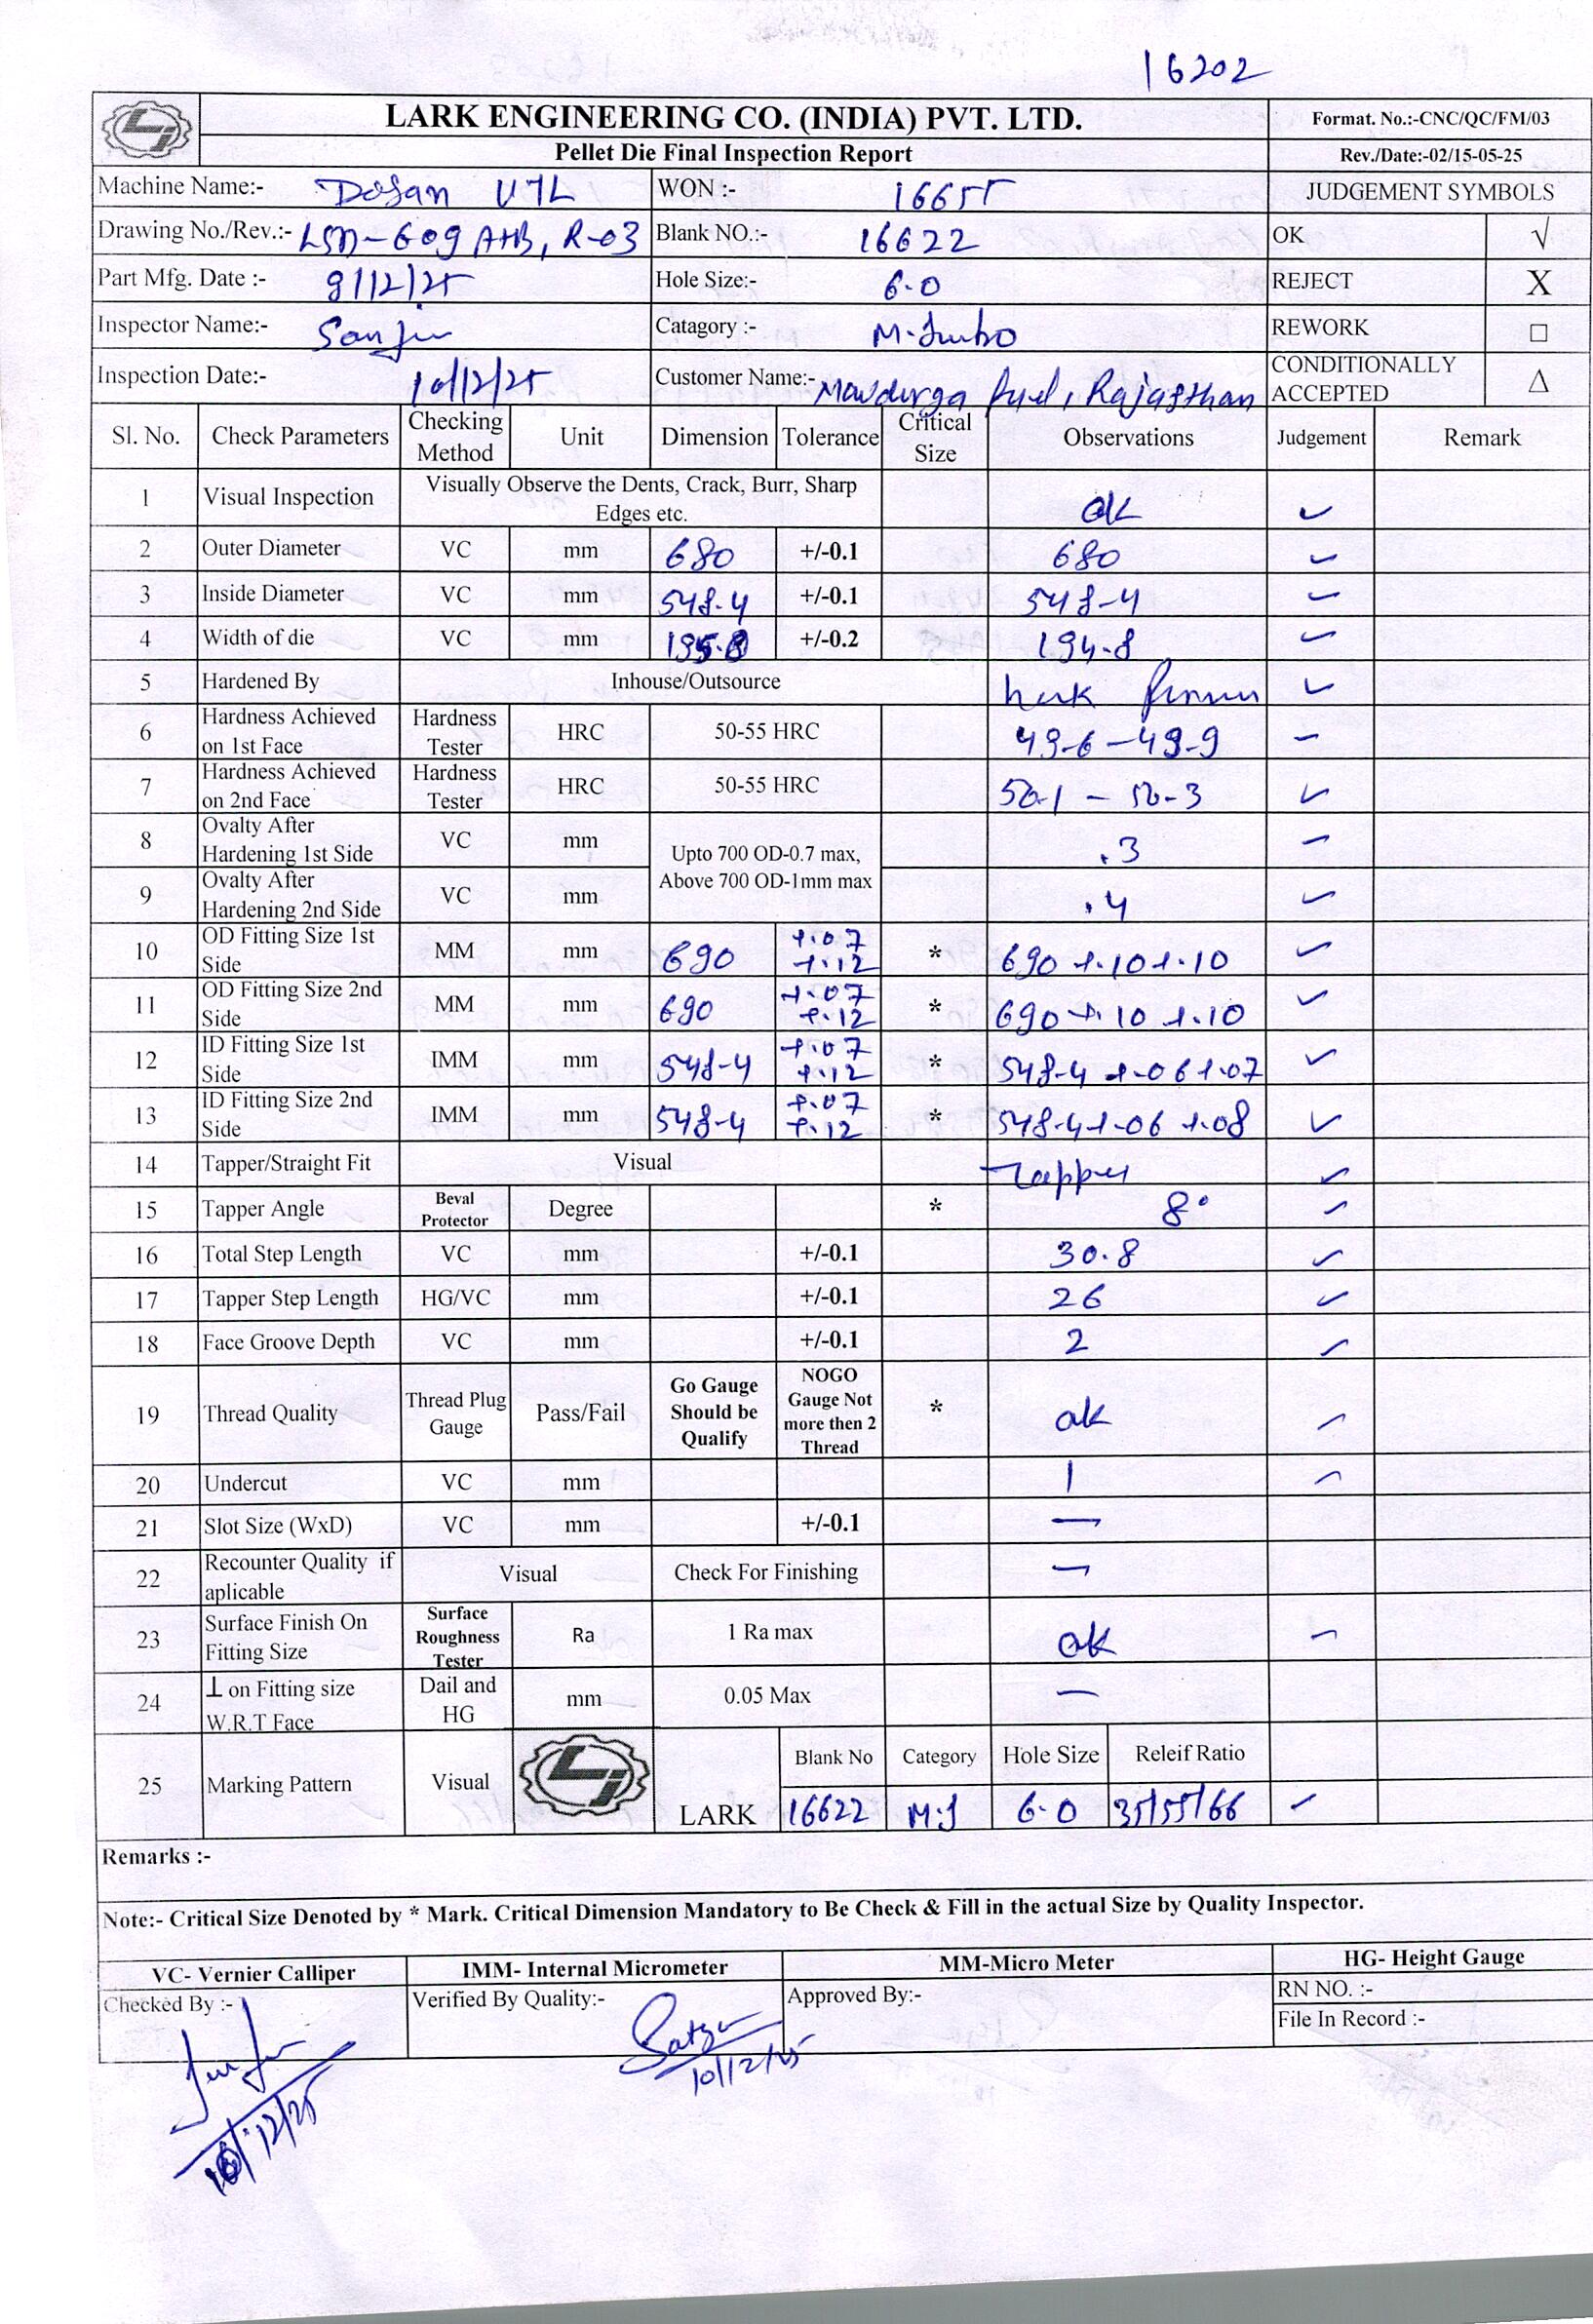 16202
LARK ENGINEERING CO. (INDIA) PVT. LTD. Format. No.:-CNC/QC/FM/03
Pellet Die Final Inspection Report Rev./Date:-02/15-05-25
Machine Name:- Dosan VTL WON :- 16655 JUDGEMENT SYMBOLS
Drawing No./Rev.:- LSD-609 A+B, R-03 Blank NO.:- 16622 OK √
Part Mfg. Date :- 9/12/25 Hole Size:- 6.0 REJECT X
Inspector Name:- Sanju Catagory :- M-Jumbo REWORK □
Inspection Date:- 10/12/25 Customer Name:- Maadurga fuel, Rajasthan CONDITIONALLY ACCEPTED Δ
Sl. No. Check Parameters Checking Method Unit Dimension Tolerance Critical Size Observations Judgement Remark
1 Visual Inspection Visually Observe the Dents, Crack, Burr, Sharp Edges etc. ok ✓
2 Outer Diameter VC mm 680 +/-0.1 680 ✓
3 Inside Diameter VC mm 548.4 +/-0.1 548-4 ✓
4 Width of die VC mm +/-0.2 194-8 ✓
5 Hardened By Inhouse/Outsource ✓
6 Hardness Achieved on 1st Face Hardness Tester HRC 50-55 HRC 49-6 - 49-9 ✓
7 Hardness Achieved on 2nd Face Hardness Tester HRC 50-55 HRC 50-1 - 50-3 ✓
8 Ovalty After Hardening 1st Side VC mm Upto 700 OD-0.7 max, Above 700 OD-1mm max .3 ✓
9 Ovalty After Hardening 2nd Side VC mm .4 ✓
10 OD Fitting Size 1st Side MM mm 690 +.07 +.12 * 690 +.10 +.10 ✓
11 OD Fitting Size 2nd Side MM mm 690 +.07 +.12 * 690 +.10 +.10 ✓
12 ID Fitting Size 1st Side IMM mm 548-4 +.07 +.12 * 548-4 +.06 +.07 ✓
13 ID Fitting Size 2nd Side IMM mm 548-4 +.07 +.12 * 548-4 +.06 +.08 ✓
14 Tapper/Straight Fit Visual Tapper ✓
15 Tapper Angle Beval Protector Degree * 8° ✓
16 Total Step Length VC mm +/-0.1 30.8 ✓
17 Tapper Step Length HG/VC mm +/-0.1 26 ✓
18 Face Groove Depth VC mm +/-0.1 2 ✓
19 Thread Quality Thread Plug Gauge Pass/Fail Go Gauge Should be Qualify NOGO Gauge Not more then 2 Thread * ok ✓
20 Undercut VC mm 1 ✓
21 Slot Size (WxD) VC mm +/-0.1 —
22 Recounter Quality if aplicable Visual Check For Finishing —
23 Surface Finish On Fitting Size Surface Roughness Tester Ra 1 Ra max ok ✓
24 ⊥ on Fitting size W.R.T Face Dail and HG mm 0.05 Max —
25 Marking Pattern Visual LARK Blank No Category Hole Size Releif Ratio
16622 M.J 6.0 35/55/66 ✓
Remarks :-
Note:- Critical Size Denoted by * Mark. Critical Dimension Mandatory to Be Check & Fill in the actual Size by Quality Inspector.
VC- Vernier Calliper IMM- Internal Micrometer MM-Micro Meter HG- Height Gauge
Checked By :- Verified By Quality:- Approved By:- RN NO. :-
File In Record :-
10/12/25
10/12/25